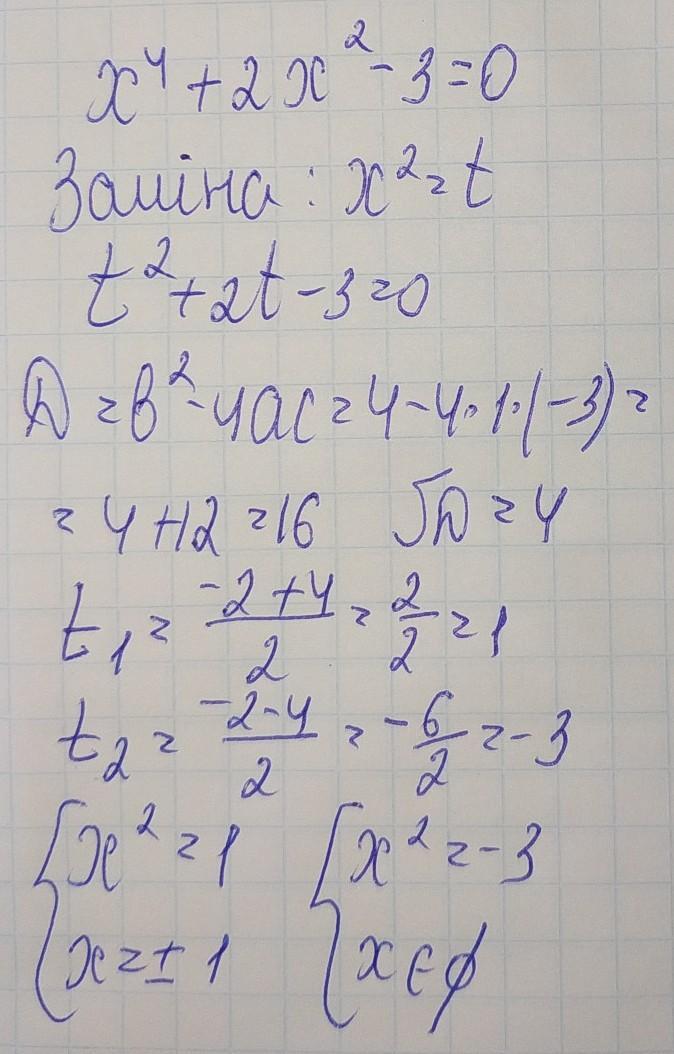 x⁴ + 2x² - 3 = 0
Заміна : x² = t
t² + 2t - 3 = 0
D = b² - 4ac = 4 - 4·1·(-3) =
= 4 + 12 = 16 √D = 4
t₁ = (-2+4)/2 = 2/2 = 1
t₂ = (-2-4)/2 = -6/2 = -3
{ x² = 1 { x² = -3
x = ± 1 x ∈ ∅